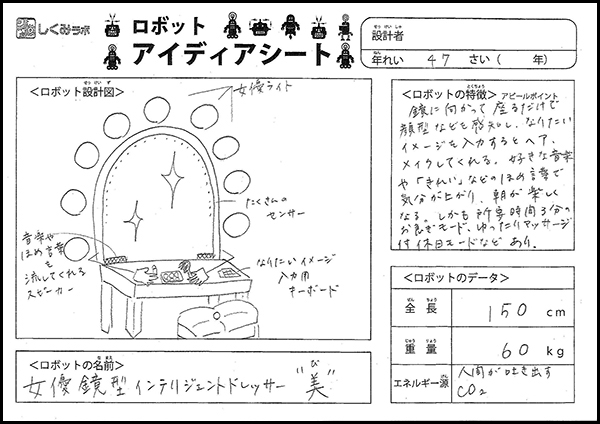 しくみラボ
ロボット
アイディアシート
設計者
せっ けい しゃ
年れい 47 さい( 年)
ねん
<ロボット設計図>
せっ けい ず
女優ライト
たくさんの
センサー
音楽や
ほめ言葉
を
流してくれる
スピーカー
なりたいイメージ
入力用
キーボード
<ロボットの特徴> アピールポイント
とくちょう
鏡に向かって座るだけで
顔型などを感知し、なりたい
イメージを入力するとヘア、
メイクしてくれる。好きな音楽
や「きれい」などのほめ言葉で
気分が上がり、朝が楽しく
なる。しかも所要時間3分の
お急ぎモード、ゆったりマッサージ
付休日モードなどあり。
<ロボットのデータ>
全長 150 cm
ぜん ちょう
重量 60 kg
じゅう りょう
エネルギー源 人間が吐き出す
げん
CO2
<ロボットの名前>
な まえ
女優鏡型インテリジェントドレッサー "美"
び